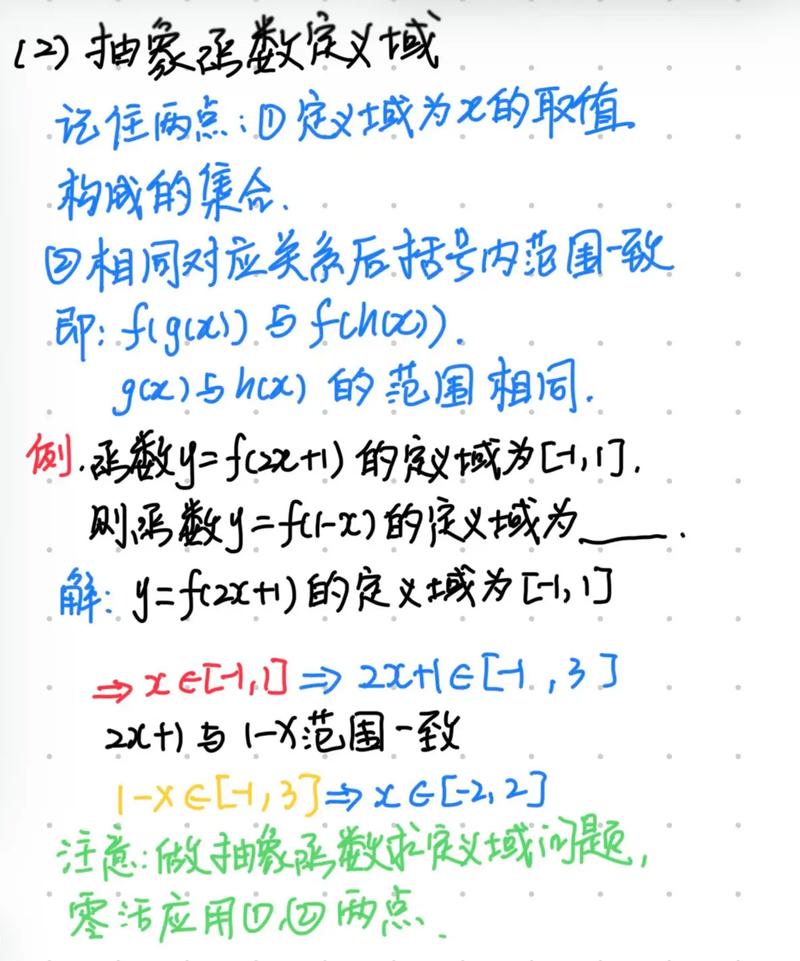 (2) 抽象函数定义域
记住两点:①定义域为x的取值
构成的集合.
②相同对应关系后括号内范围一致
即: f(g(x)) 与 f(h(x)).
g(x)与h(x) 的范围相同.
例.函数y=f(2x+1)的定义域为[-1,1].
则函数y=f(1-x)的定义域为____.
解: y=f(2x+1)的定义域为[-1,1]
⇒x∈[-1,1]⇒2x+1∈[-1,3]
2x+1与1-x范围一致
1-x∈[-1,3]⇒x∈[-2,2]
注意:做抽象函数求定义域问题,
零活应用①,②两点.